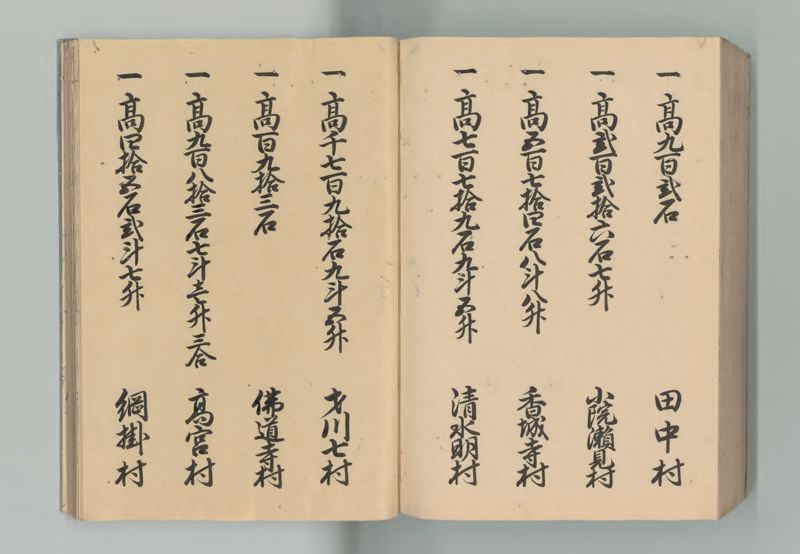 一 高九百弐石 田中村
一 高弐百弐拾六石七升 小院瀬見村
一 高五百七拾四石八斗八升 香城寺村
一 高七百七拾九石九斗五升 清水明村
一 高千七百九拾石九斗五升 才川七村
一 高百九拾三石 佛道寺村
一 高九百八拾三石七斗壱升三合 高宮村
一 高四拾五石弐斗七升 綱掛村